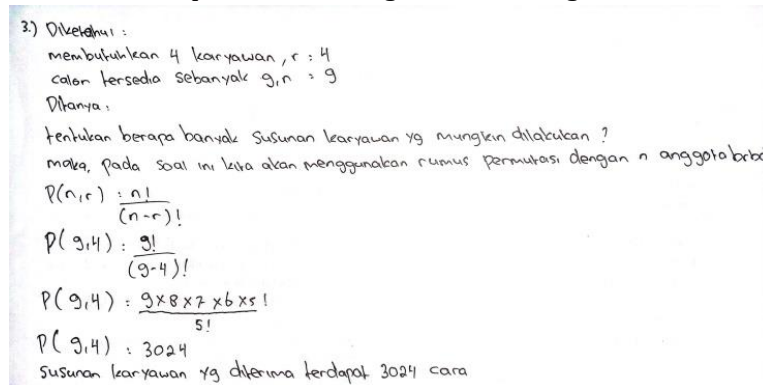 3.) Diketahui :
membutuhkan 4 karyawan, r : 4
calon tersedia sebanyak 9, n : 9
Ditanya :
tentukan berapa banyak susunan karyawan yg mungkin dilakukan ?
maka, pada soal ini kita akan menggunakan rumus permutasi dengan n anggota brbd
P(n,r) : n!
(n-r)!
P(9,4) : 9!
(9-4)!
P(9,4) : 9x8x7x6x5!
5!
P(9,4) : 3024
Susunan karyawan yg diterima terdapat 3024 cara